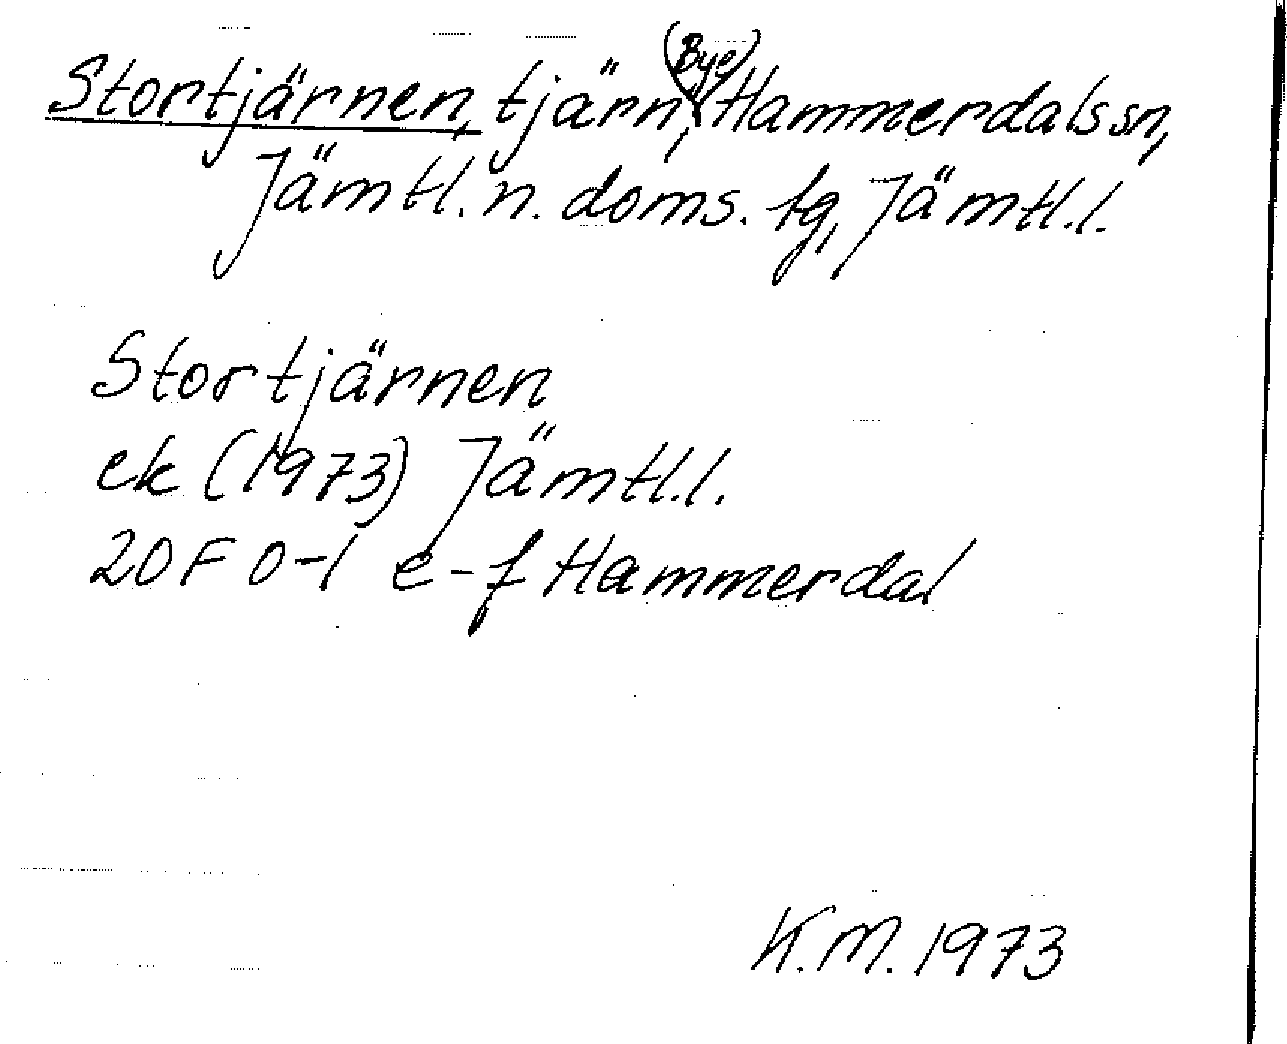 Stortjärnen, tjärn, (Bye) Hammerdals sn,
Jämtl. n. doms. tg, Jämtl. l.
Stortjärnen
ek (1973) Jämtl. l.
20F 0-1 e-f Hammerdal
K.M. 1973